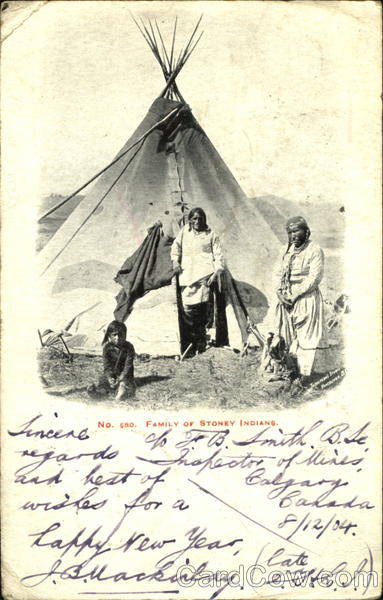 No. 580. Family of Stoney Indians.
Sincere
regards
and best of
wishes for a
happy New Year,
c/o F. B. Smith, B.Sc
Inspector of Mines,
Calgary
Canada
8/12/04.
(late
CardCow.com